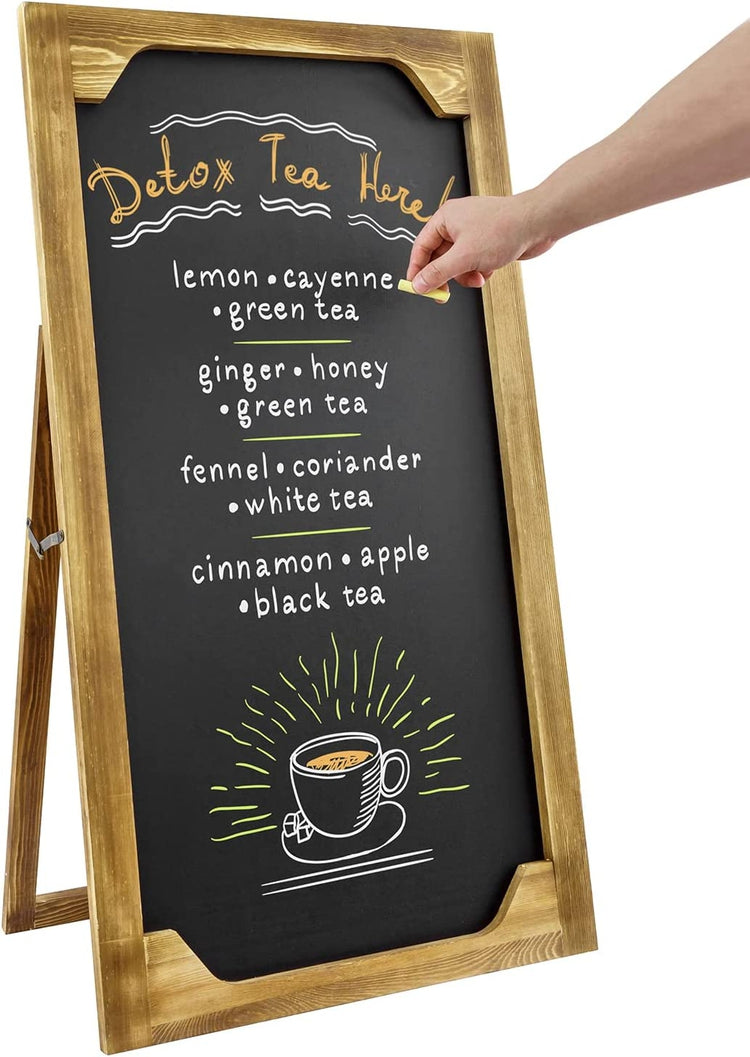 Detox Tea Here!
lemon • cayenne
• green tea
ginger • honey
• green tea
fennel • coriander
• white tea
cinnamon • apple
• black tea